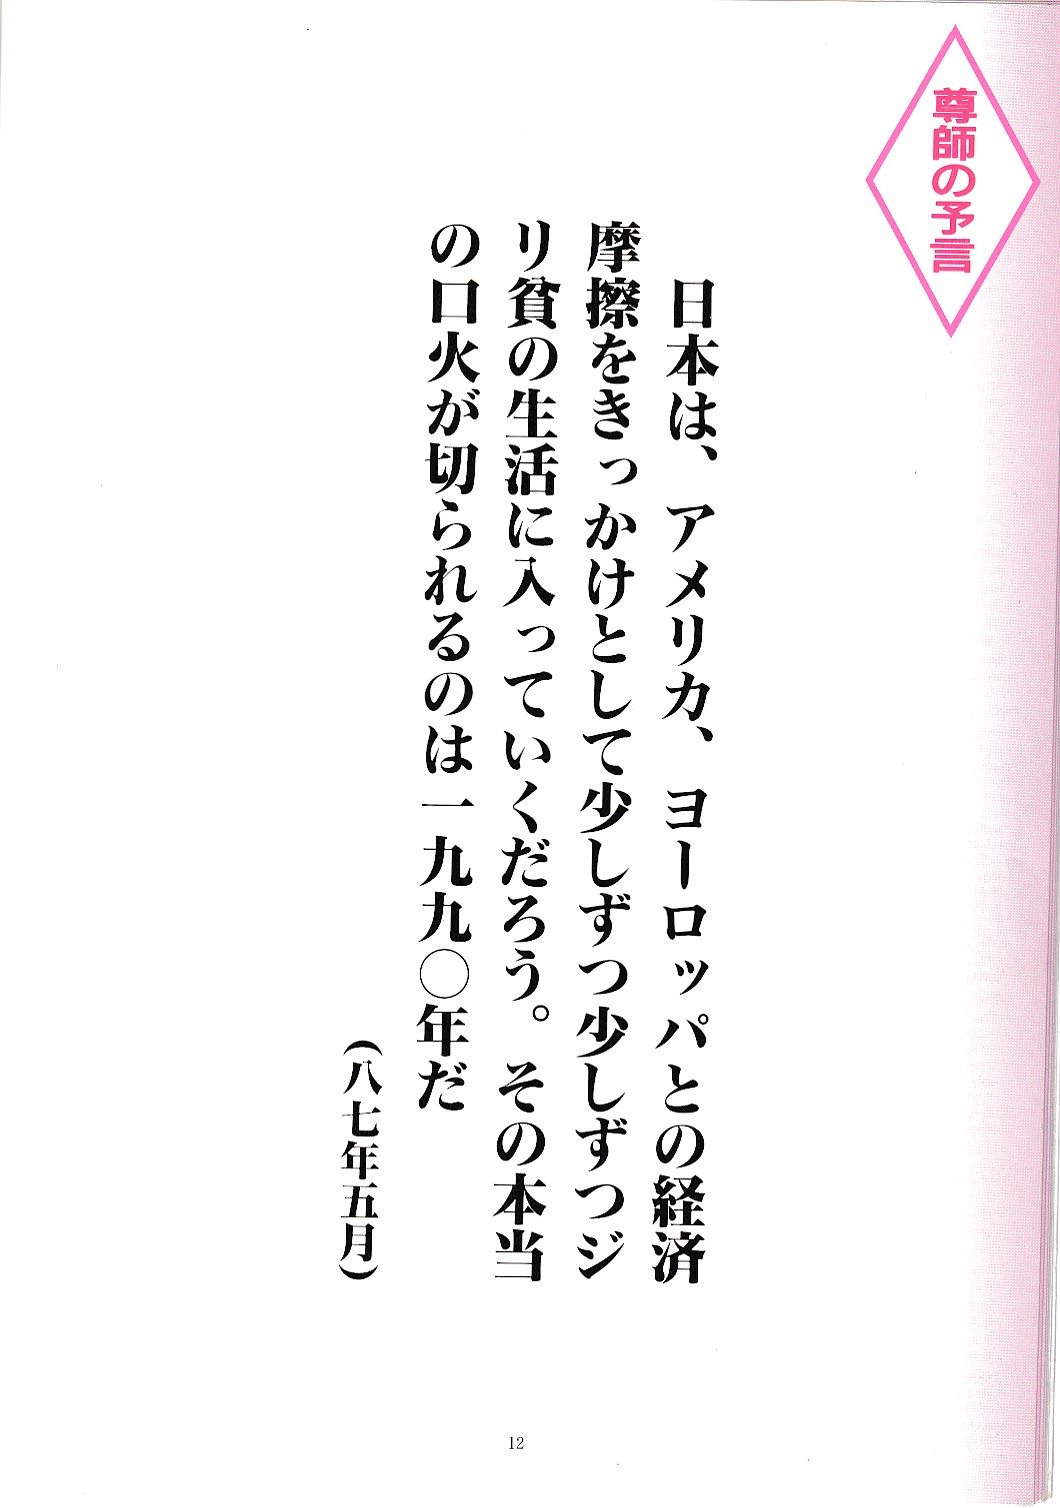 尊師の予言
日本は、アメリカ、ヨーロッパとの経済
摩擦をきっかけとして少しずつ少しずつジ
リ貧の生活に入っていくだろう。その本当
の口火が切られるのは一九九〇年だ
（八七年五月）
12